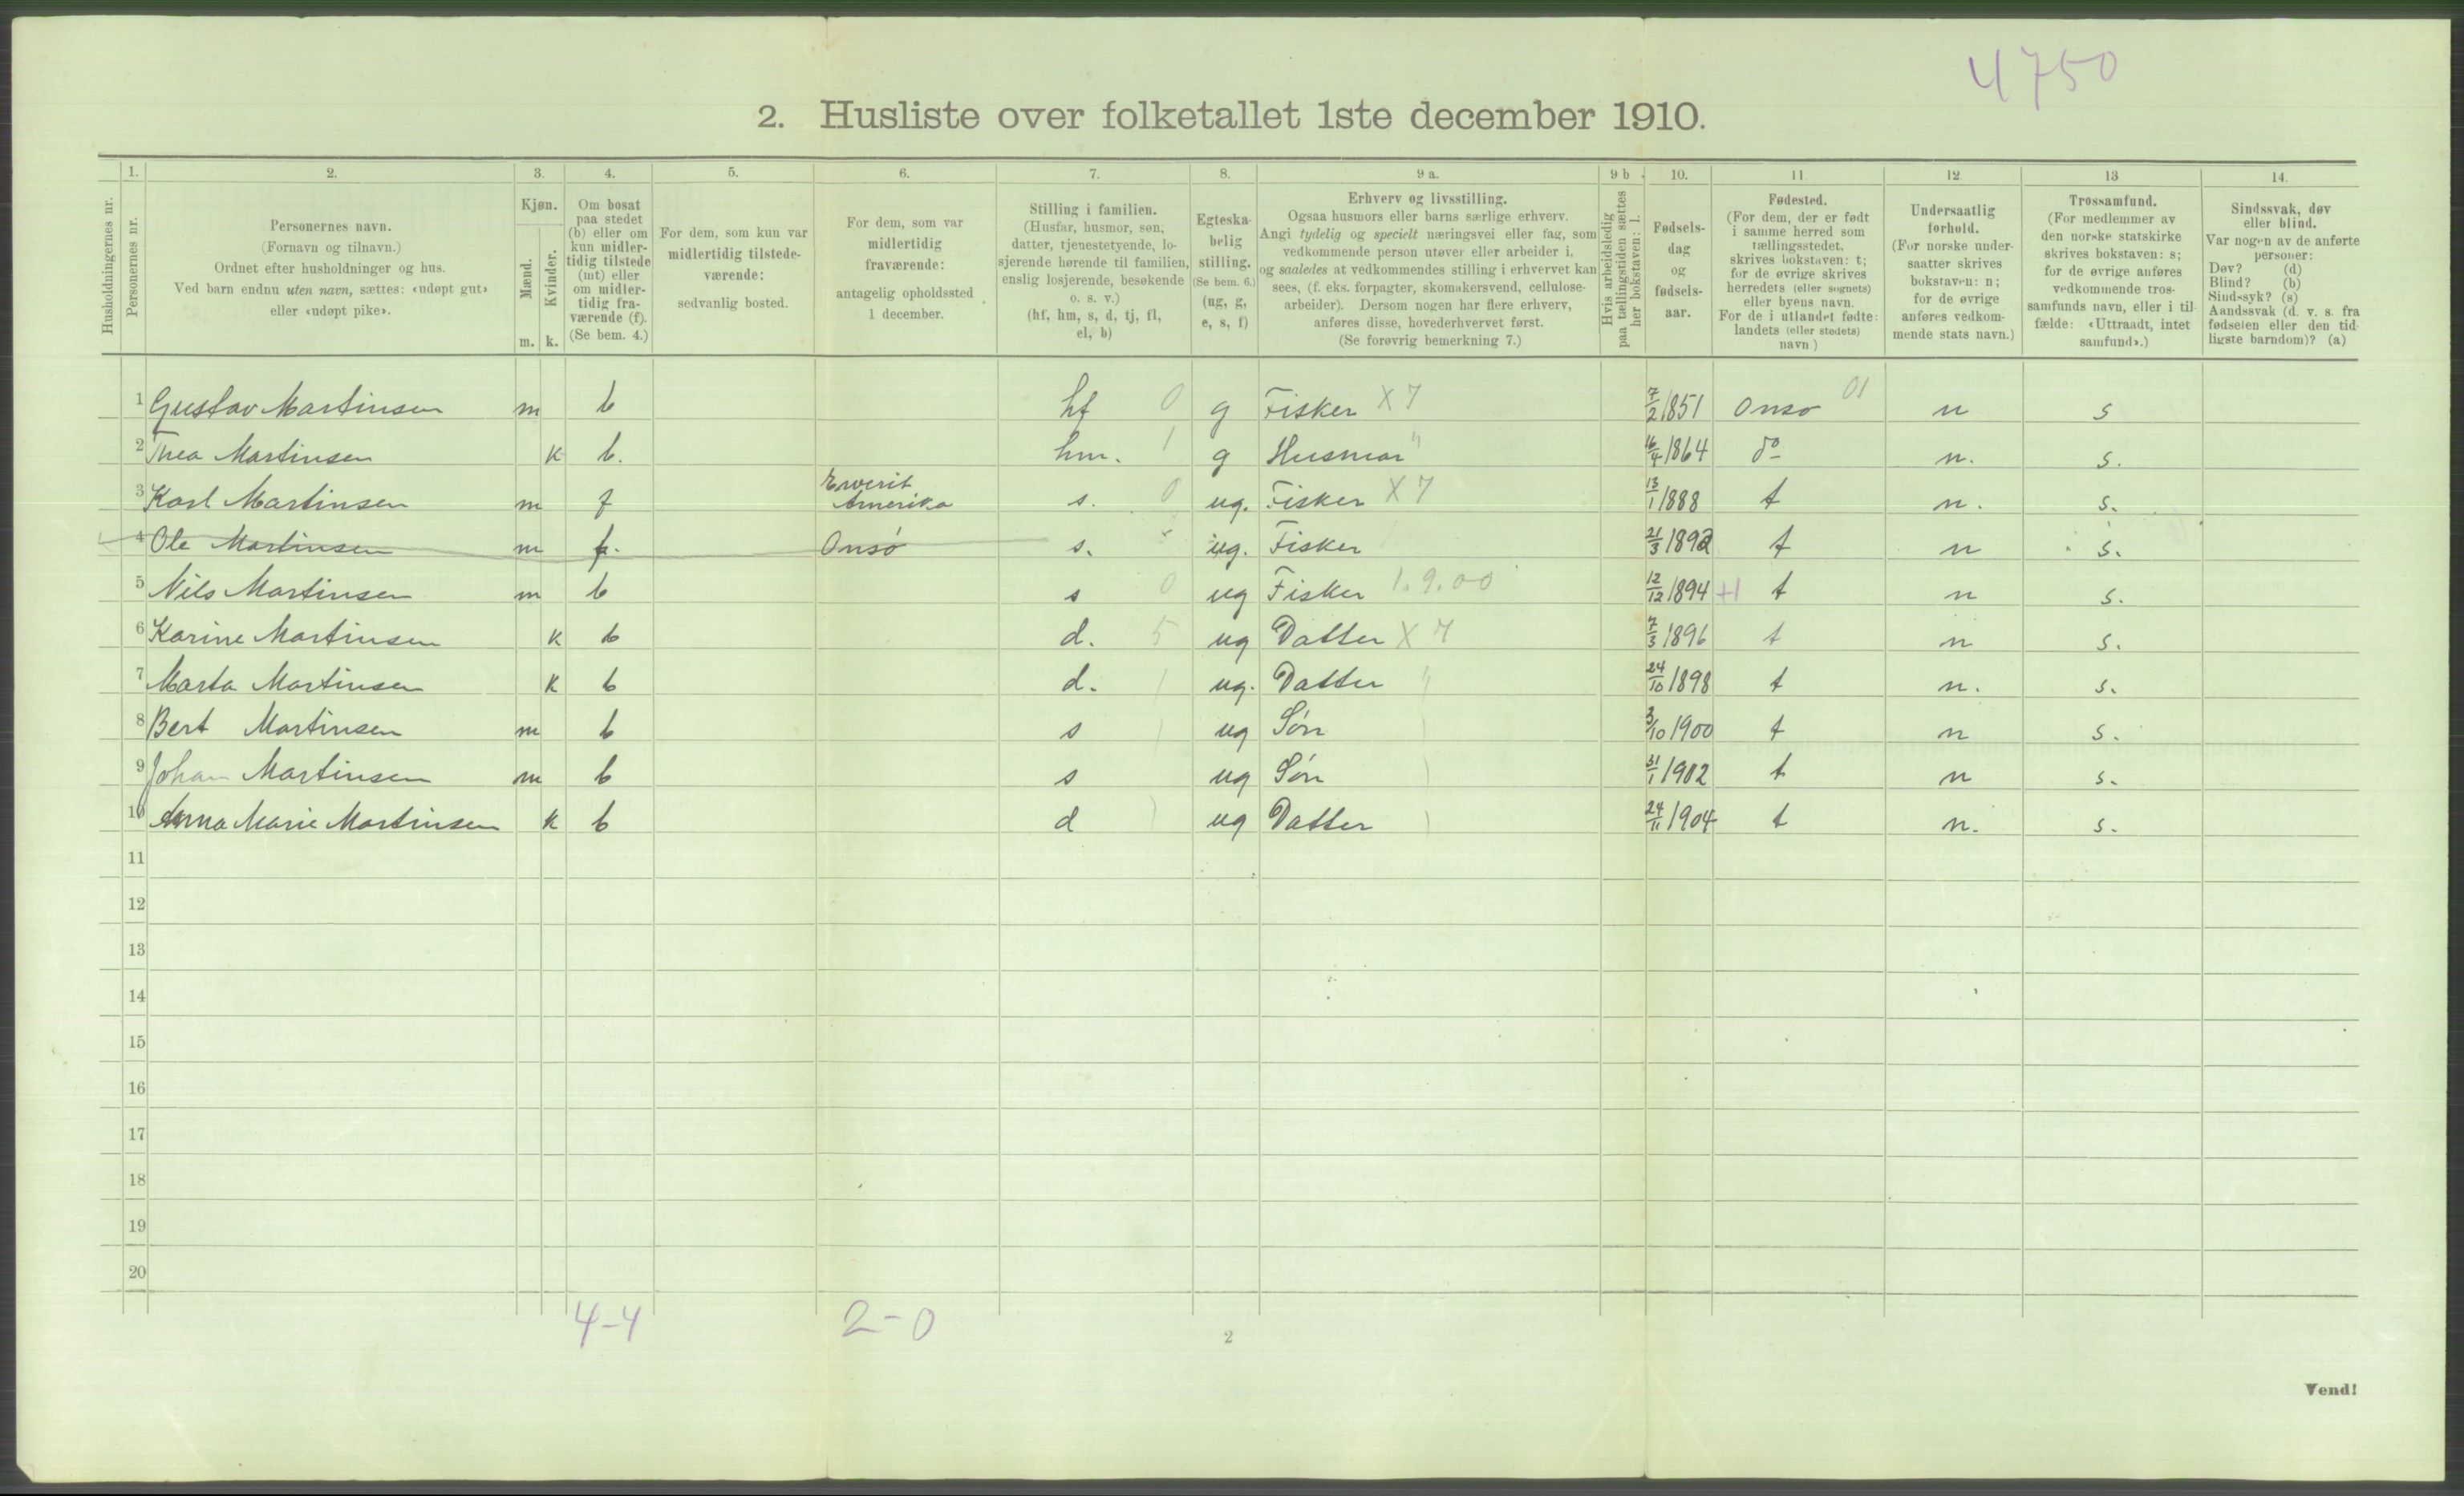 4750
2. Husliste over folketallet 1ste december 1910.
Husholdningernes nr.
1.
Personernes nr.
2.
Personernes navn.
(Fornavn og tilnavn.)
Ordnet efter husholdninger og hus.
Ved barn endnu uten navn, sættes: «udøpt gut»
eller «udøpt pike».
3.
Kjøn.
Mænd.
Kvinder.
m. k.
4.
Om bosat
paa stedet
(b) eller om
kun midler-
tidig tilstede
(mt) eller
om midler-
tidig fra-
værende (f).
(Se bem. 4.)
5.
For dem, som kun var
midlertidig tilstede-
værende:
sedvanlig bosted.
6.
For dem, som var
midlertidig
fraværende:
antagelig opholdssted
1 december.
7.
Stilling i familien.
(Husfar, husmor, søn,
datter, tjenestetyende, lo-
sjerende hørende til familien,
enslig losjerende, besøkende
o. s. v.)
(hf, hm, s, d, tj, fl,
el, b)
8.
Egteska-
belig
stilling.
(Se bem. 6.)
(ug, g,
e, s, f)
9 a.
Erhverv og livsstilling.
Ogsaa husmors eller barns særlige erhverv.
Angi tydelig og specielt næringsvei eller fag, som
vedkommende person utøver eller arbeider i,
og saaledes at vedkommendes stilling i erhvervet kan
sees, (f. eks. forpagter, skomakersvend, cellulose-
arbeider). Dersom nogen har flere erhverv,
anføres disse, hovederhvervet først.
(Se forøvrig bemerkning 7.)
9 b.
Hvis arbeidsledig
paa tællingstiden sættes
her bokstaven: l.
10.
Fødsels-
dag
og
fødsels-
aar.
11
Fødested.
(For dem, der er født
i samme herred som
tællingsstedet,
skrives bokstaven: t;
for de øvrige skrives
herredets (eller sognets)
eller byens navn.
For de i utlandet fødte:
landets (eller stedets)
navn)
12
Undersaatlig
forhold.
(For norske under-
saatter skrives
bokstaven: n;
for de øvrige
anføres vedkom-
mende stats navn.)
13
Trossamfund.
(For medlemmer av
den norske statskirke
skrives bokstaven: s;
for de øvrige anføres
vedkommende tros-
samfunds navn, eller i til-
fælde: «Uttraadt, intet
samfund».)
14.
Sindssvak, døv
eller blind.
Var nogen av de anførte
personer:
Døv? (d)
Blind? (b)
Sindssyk? (s)
Aandssvak (d. v. s. fra
fødselen eller den tid-
ligste barndom)? (a)
1 Gustav Martinsen m b hf 0 g Fisker X 7 7/2 1851 Onso 01 n s
2 Thea Martinsen k b. hm. 1 g Husmor " 16/4 1864 do n. s.
3 Karl Martinsen m f Amerika s. 0 ug. Fisker X 7 13/1 1888 t n. s.
4 Ole Martinsen m f. Onsø s. ug. Fisker 21/3 1892 t n s.
5 Nils Martinsen m b s 0 ug Fisker 1.9.00 12/12 1894 +1 t n s.
6 Karine Martinsen k b d. 5 ug Datter X 7 7/3 1896 t n s.
7 Marta Martinsen k b d. 1 ug. Datter " 24/10 1898 t n. s.
8 Bert Martinsen m b s ug Søn 3/10 1900 t n s.
9 Johan Martinsen m b s ug Søn 31/1 1902 t n s.
10 Anna Marie Martinsen k b d ug Datter 24/11 1904 t n. s.
11
12
13
14
15
16
17
18
19
20
4-4 2-0
2
Vend!